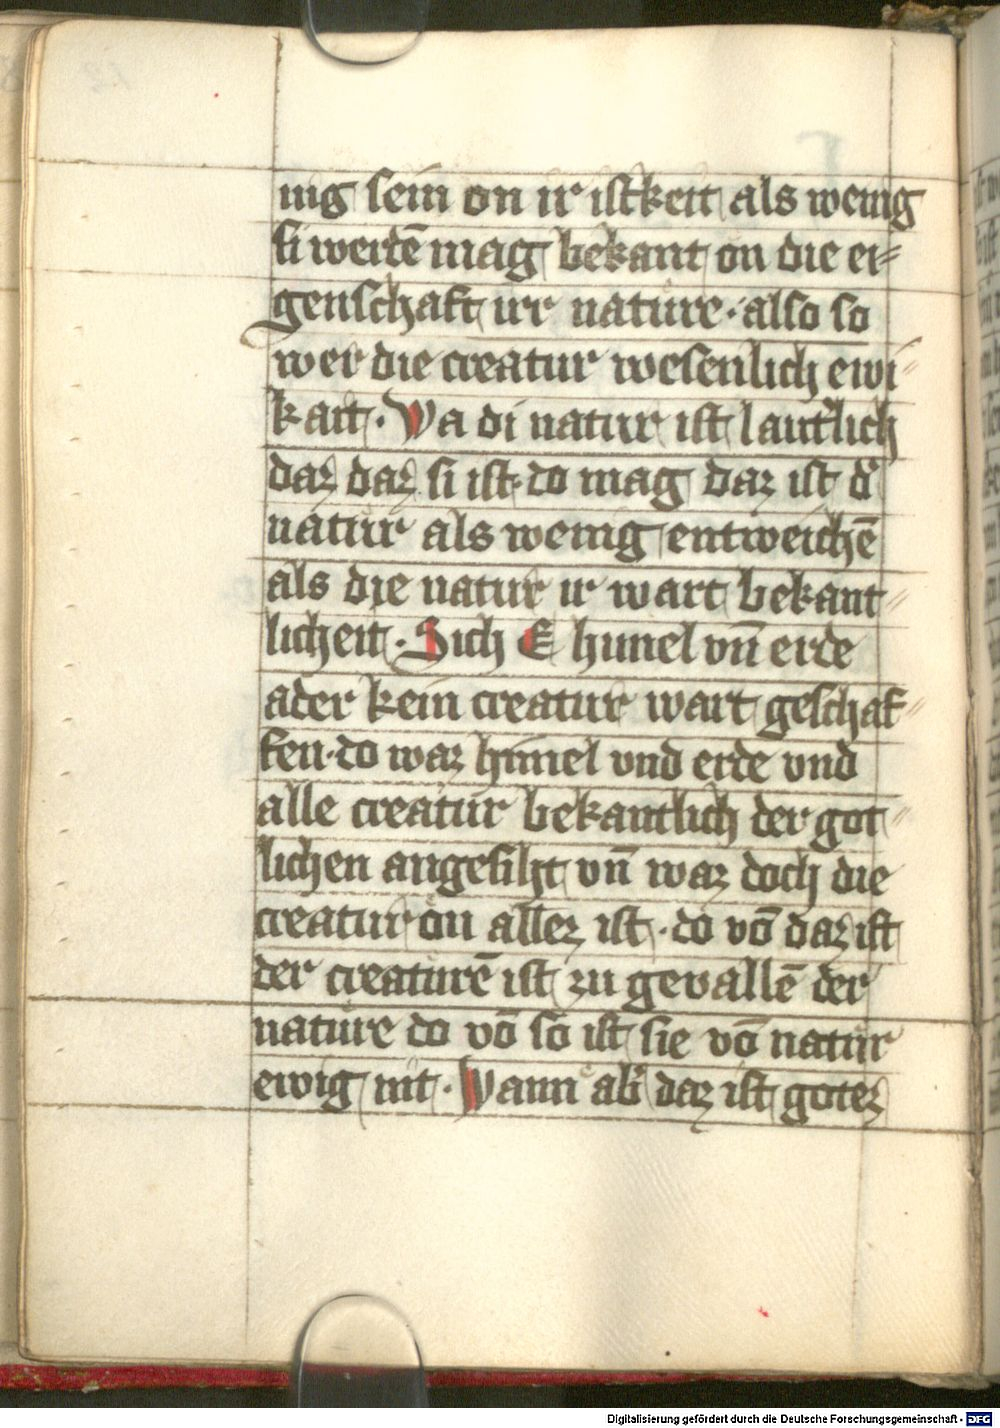 nig sein on ir istkeit als wenig
si werdē mag bekant on die ei⸗
genschaft irr nature · also so
wer die creatur wesenlich ewi⸗
kait · Wa di natur ist lautˀlich
daz daz si ist · do mag daz ist dˀ
natur als wenig entweichē
als die natur ir wart bekant⸗
licheit · Sich E himel vn̄ erde
ader kein creatur wart geschaf⸗
fen · do waz himel vnd erde vnd
alle creatur bekantlich der got⸗
lichen angesiht vn̄ waz doch die
creatur on allez ist · do vō daz ist
der creaturē ist zu gevallē der
nature do vō so ist sie vō natur
ewig nit · Wann abˀ daz ist gotez
Digitalisierung gefördert durch die Deutsche Forschungsgemeinschaft - DFG